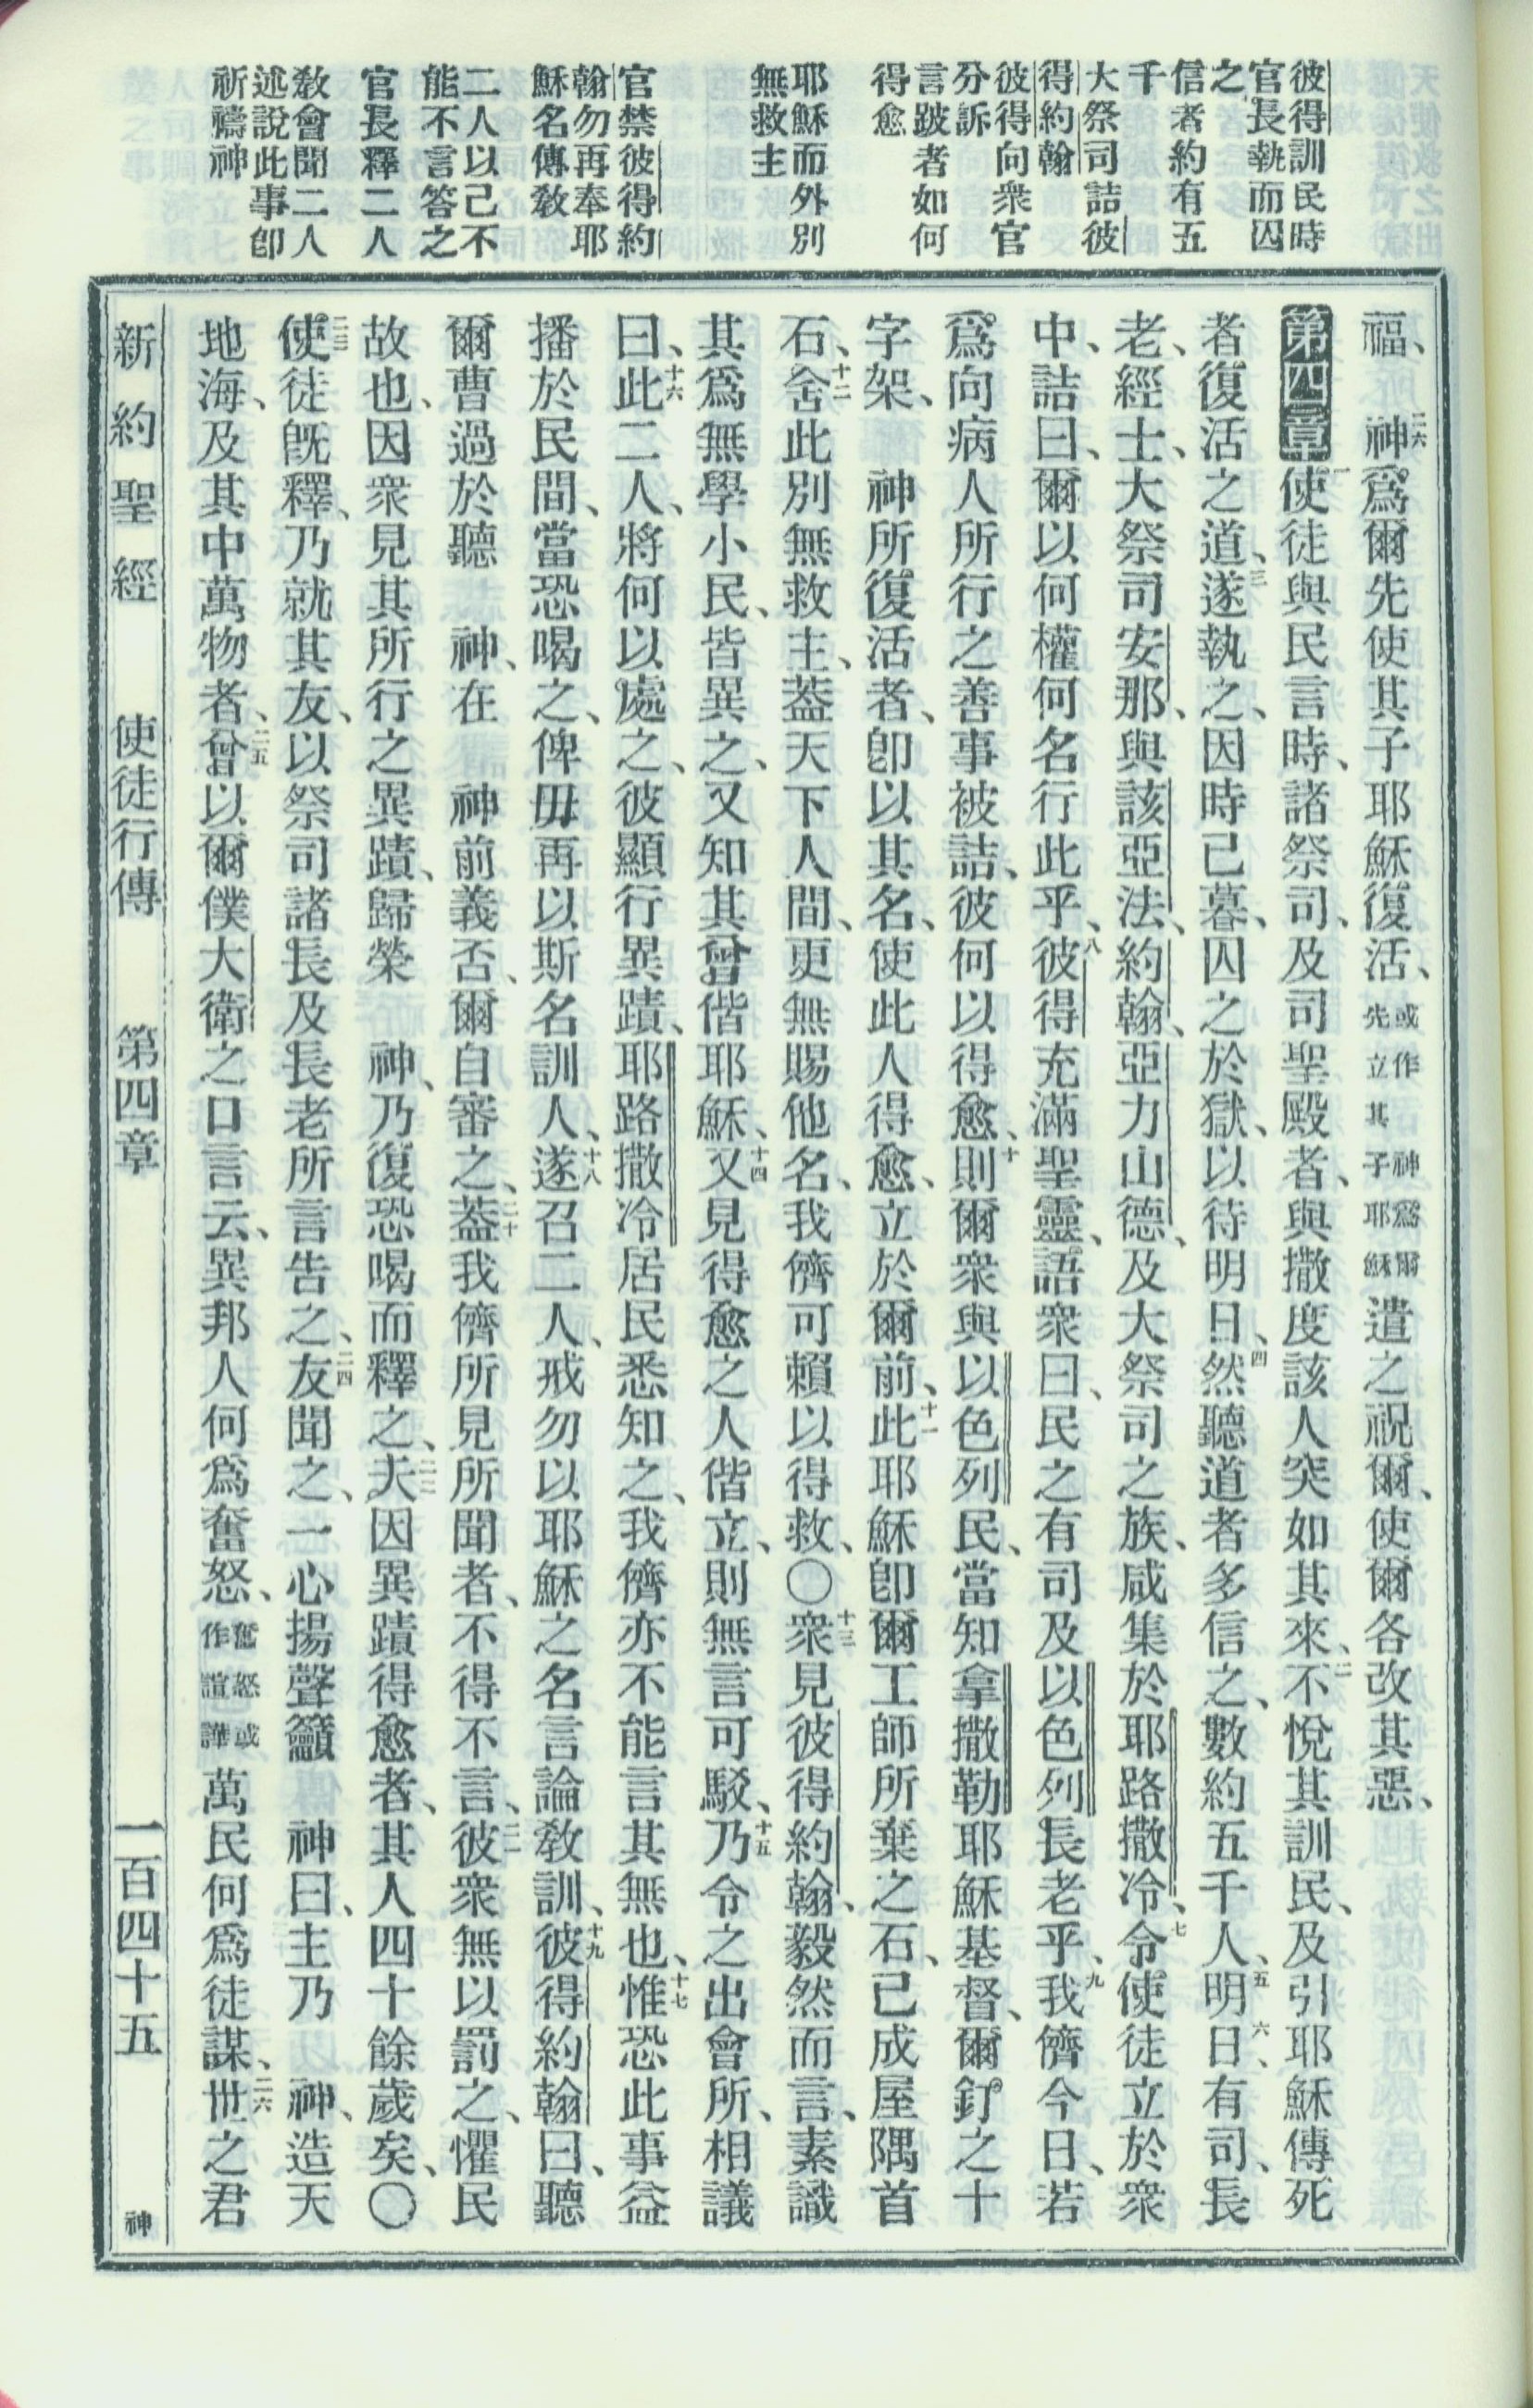 彼得訓民時
官長執而囚
之
信者約有五
千
大祭司詰彼
得約翰
彼得向衆官
分訴
言跛者如何
得愈
耶穌而外別
無救主
官禁彼得約
翰勿再奉耶
穌名傳敎
二人以己不
能不言答之
官長釋二人
敎會聞二人
述說此事卽
祈禱神
福、二六神爲爾先使其子耶穌復活、或作神爲爾先立其子耶穌遣之祝爾、使爾各改其惡、
第四章一使徒與民言時、諸祭司、及司聖殿者、與撒度該人突如其來、二不悅其訓民、及引耶穌傳死
者復活之道、三遂執之、因時已暮、囚之於獄、以待明日、四然聽道者多信之、數約五千人、五明日、六有司、長
老、經士、大祭司安那、與該亞法、約翰、亞力山德、及大祭司之族、咸集於耶路撒冷、七令使徒立於衆
中、詰曰、爾以何權何名行此乎、八彼得充滿聖靈、語衆曰、民之有司及以色列長老乎、九我儕今日、若
爲向病人所行之善事被詰、彼何以得愈、十則爾衆與以色列民、當知拿撒勒耶穌基督、爾釘之十
字架、神所復活者、卽以其名、使此人得愈、立於爾前、十一此耶穌卽爾工師所棄之石、已成屋隅首
石、十二舍此別無救主、蓋天下人間、更無賜他名、我儕可賴以得救、〇十三衆見彼得約翰、毅然而言、素識
其爲無學小民、皆異之、又知其曾偕耶穌、十四又見得愈之人偕立、則無言可駁、十五乃令之出會所、相議
曰、十六此二人、將何以處之、彼顯行異蹟、耶路撒冷居民悉知之、我儕亦不能言其無也、十七惟恐此事益
播於民間、當恐喝之、俾毋再以斯名訓人、十八遂召二人、戒勿以耶穌之名言論敎訓、十九彼得約翰曰、聽
爾曹過於聽神、在神前義否、爾自審之、二十蓋我儕所見所聞者、不得不言、二一彼衆無以罰之、懼民
故也、因衆見其所行之異蹟、歸榮神、乃復恐喝而釋之、二二夫因異蹟得愈者、其人四十餘歲矣、〇
二三使徒旣釋、乃就其友、以祭司諸長及長老所言告之、二四友聞之、一心揚聲籲神曰、主乃神、造天
地海、及其中萬物者、二五曾以爾僕大衛之口言云、異邦人何爲奮怒、奮怒或作諠譁萬民何爲徒謀、二六世之君
新約聖經 使徒行傳 第四章 一百四十五 神